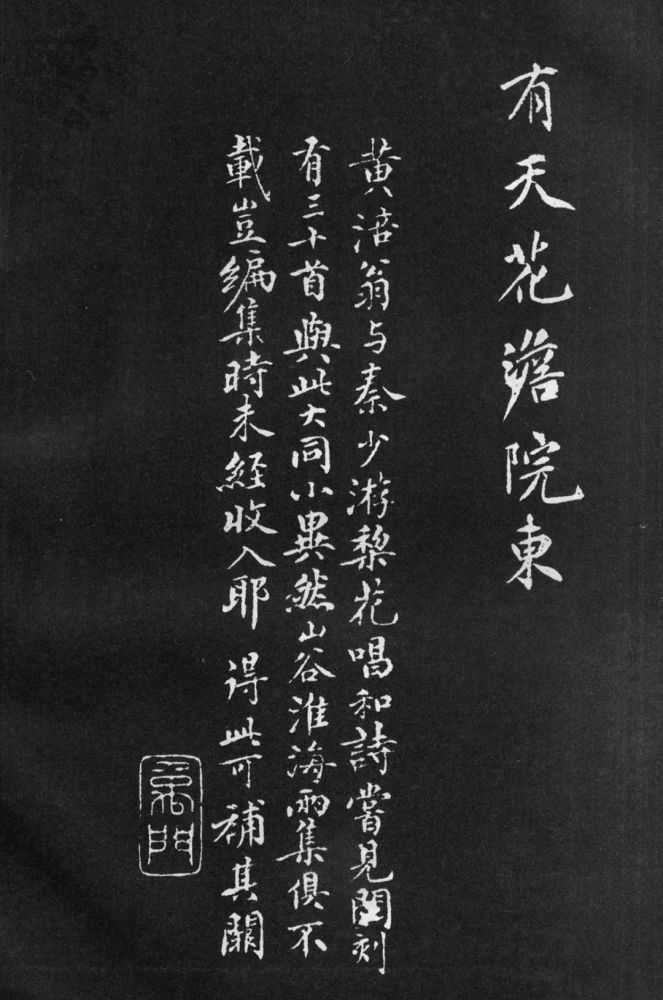 有天花簷院東
黄涪翁与秦少游梨花唱和詩嘗見閣刻
有三十首與此大同小異然山谷淮海两集俱不
載豈編集時未經收入耶得此可補其闕